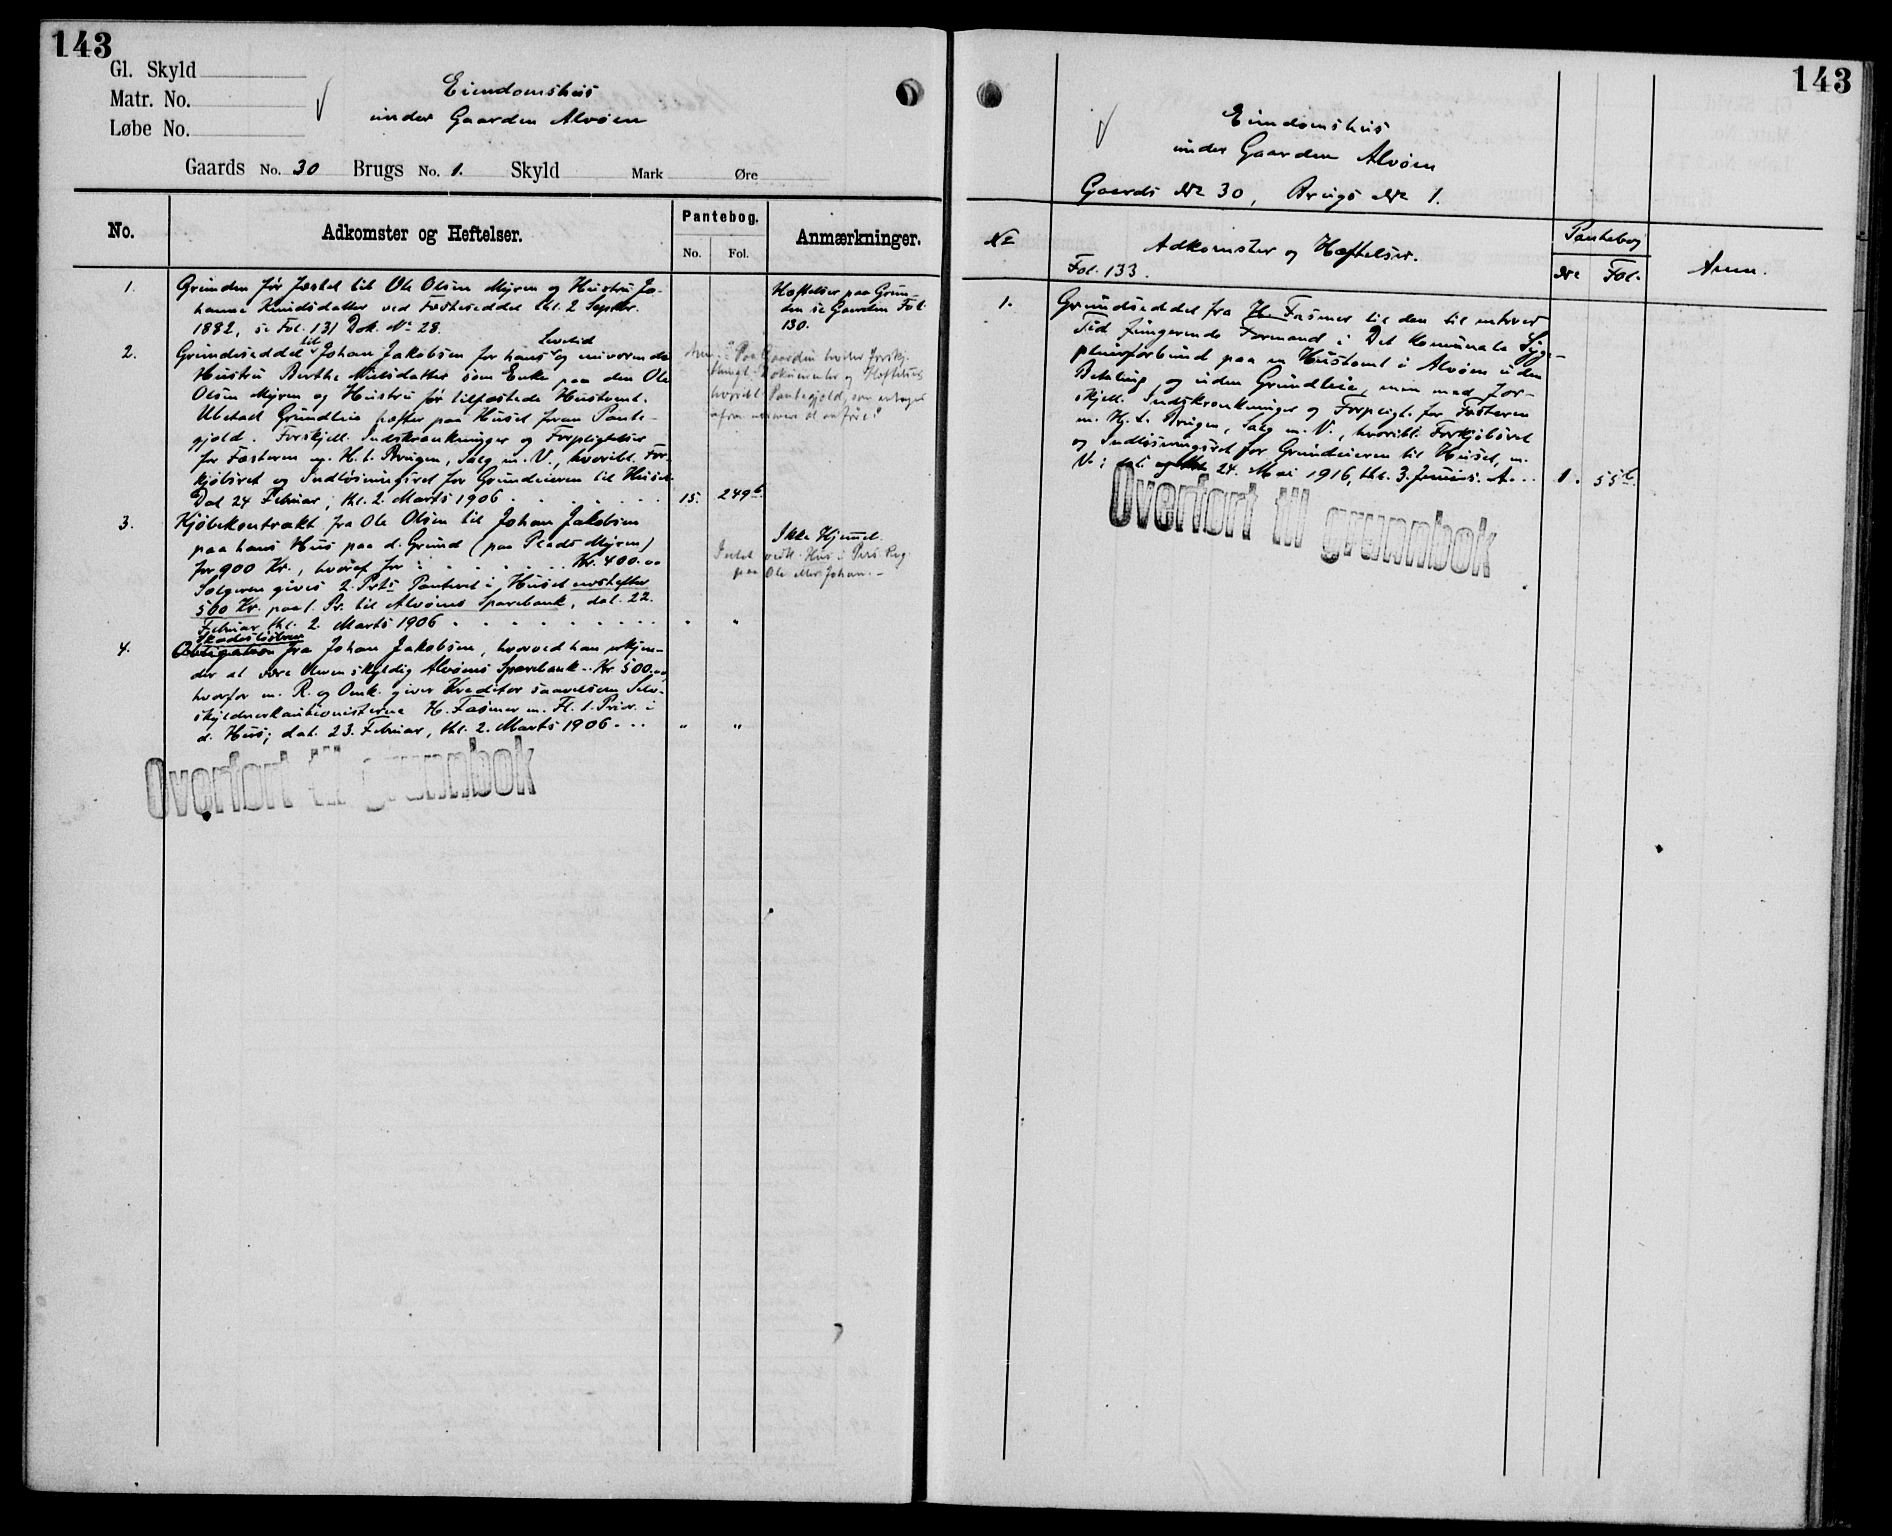 143
Gl. Skyld
Matr. No.
Løbe No.
Eiendomshus
under Gaarden Alvøen
Gaards No. 30 Brugs No. 1. Skyld Mark Øre
No.
Adkomster og Heftelser.
Pantebog.
No. Fol.
Anmærkninger.
1. Grunden før fæstet til Ole Olsen Myren og Hustru Jo-
hanne Knudsdatter ved Fæsteseddel thl. 2 Septbr.
1882, se Fol. 131 Dok. No 28.
Heftelser paa Grun-
den se Gaarden Fol.
130.
2. Grundseddel til Johan Jakobsen for hans Levetid og nuværende
Hustru Berthe Nielsdatter som Enke paa den Ole
Olsen Myren og Hustru før tilfæstede Hustomt.
Ubetalt Grundleie hefter paa Huset foran Pante-
gjæld. Forskjell. Indskrænkninger og Forpligtelser
for Fæsteren m. H. t. Brugen, Salg m. V., hvoribl. For-
kjøbsret og Indløsningsret for Grundeieren til Huset.
Dat 24 Februar, thl. 2. Marts 1906 . . . . . . . 15. 249 b
Anm.: Paa Gaarden hviler forskj.
Dokumenter og Heftelser
hvoribl. Pantegjæld,
3. Kjøbekontrakt fra Ole Olsen til Johan Jakobsen
paa hans Hus paa d. Grund (paa Plads Myren)
for 900 Kr., hvoraf for . . . . . . Kr. 400.00
Sælgeren gives 2. Prts Panteret i Huset næstefter
500 Kr. paa 1. Pr. til Alvøens Sparebank, dat. 22.
Februar, thl. 2. Marts 1906 . . . . . . . . . . " "
Ikke Hjemmel.
Intet vedk. Hus i Pers Reg
paa Ole eller Johan. –
4. Skadesløsbrev
Obligation fra Johan Jakobsen, hvorved han erkjen-
der at være bleven skyldig Alvøens Sparebank .. Kr. 500.00,
hvorfor m. R. og Omk. giver Kreditor saavelsom Selv-
skyldnerkautionisterne H. Fasmer m. Fl. 1. Prior. i
d. Hus; dat. 23. Februar, thl. 2. Marts 1906 . . . " "
Overført til grunnbok
143
Eiendomshus
under Gaarden Alvøen
Gaards No 30, Brugs No 1.
No
Adkomster og Hæftelser.
Pantebog
No Fol.
Anm.
Fol. 133.
1. Grundseddel fra H. Fasmer til den til enhver
Tid fungerende Formand i Det Komunale Syge-
pleierforbund paa en Hustomt i Alvøen uden
Betaling og uden Grundleie, men med for-
skjell. Indskrænkninger og Forpligt. for Fæsteren
m. H. t. Brugen, Salg m. V., hvoribl. Forkjøbsret
og Indløsningsret for Grundeieren til Huset, m.
V.; dat. 24. Mai 1916, thl. 3. Juni s. A. . . 1. 55 b
Overført til grunnbok